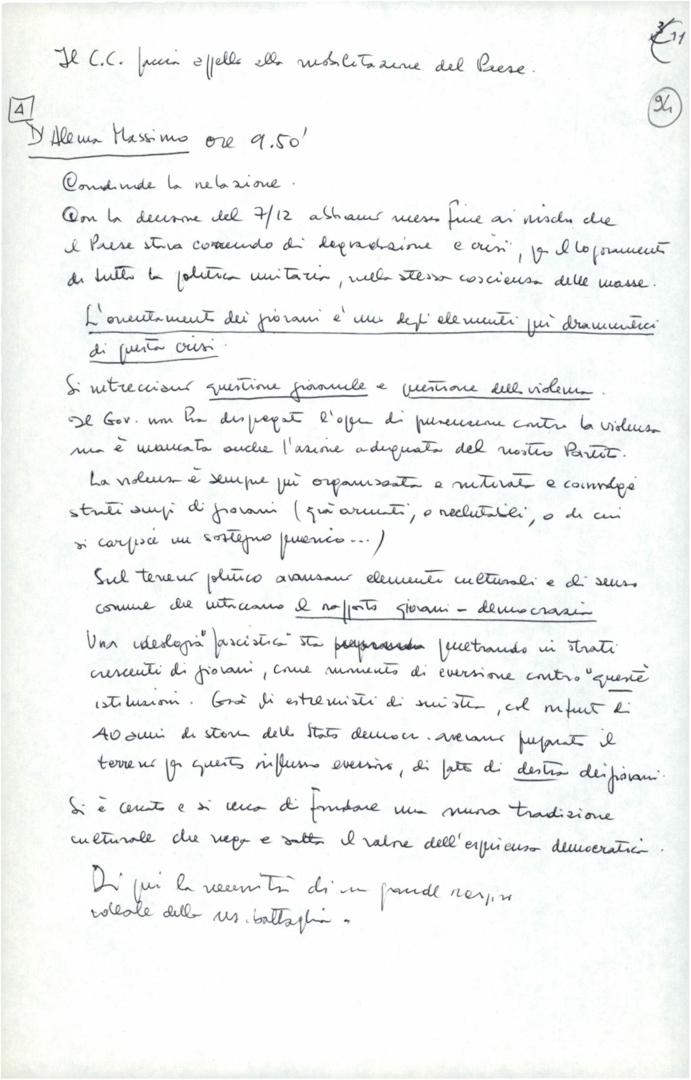 3/11
Il C.C. faccia appello alla mobilitazione del Paese.
94
4
D'Alema Massimo ore 9.50'
Condivide la relazione.
Con la decisione del 7/12 abbiamo messo fine ai rischi che
il Paese stava correndo di degradazione e crisi, per il logoramento
di tutta la politica unitaria, nella stessa coscienza delle masse.
L'orientamento dei giovani è uno degli elementi più drammatici
di questa crisi.
Si intrecciano questione giovanile e questione della violenza.
Il Gov. non ha dispiegato l'opera di prevenzione contro la violenza
ma è mancata anche l'azione adeguata del nostro Partito.
La violenza è sempre più organizzata e motivata e coinvolge
strati ampi di giovani (già armati, o reclutabili, o di cui
si carpisce un sostegno generico...)
Sul terreno politico avanzano elementi culturali e di senso
comune che intaccano il rapporto giovani - democrazia
Una ideologia "fascistica" sta penetrando in strati
crescenti di giovani, come momento di eversione contro "queste"
istituzioni. Già gli estremisti di sinistra, col rifiuto di
40 anni di storia dello Stato democr. avevano preparato il
terreno per questo influsso eversivo, di fatto di destra dei giovani.
Si è cercato e si cerca di fondare una nuova tradizione
culturale che nega e salta il valore dell'esperienza democratica.
Di qui la necessità di un grande respiro
ideale della ns. battaglia.